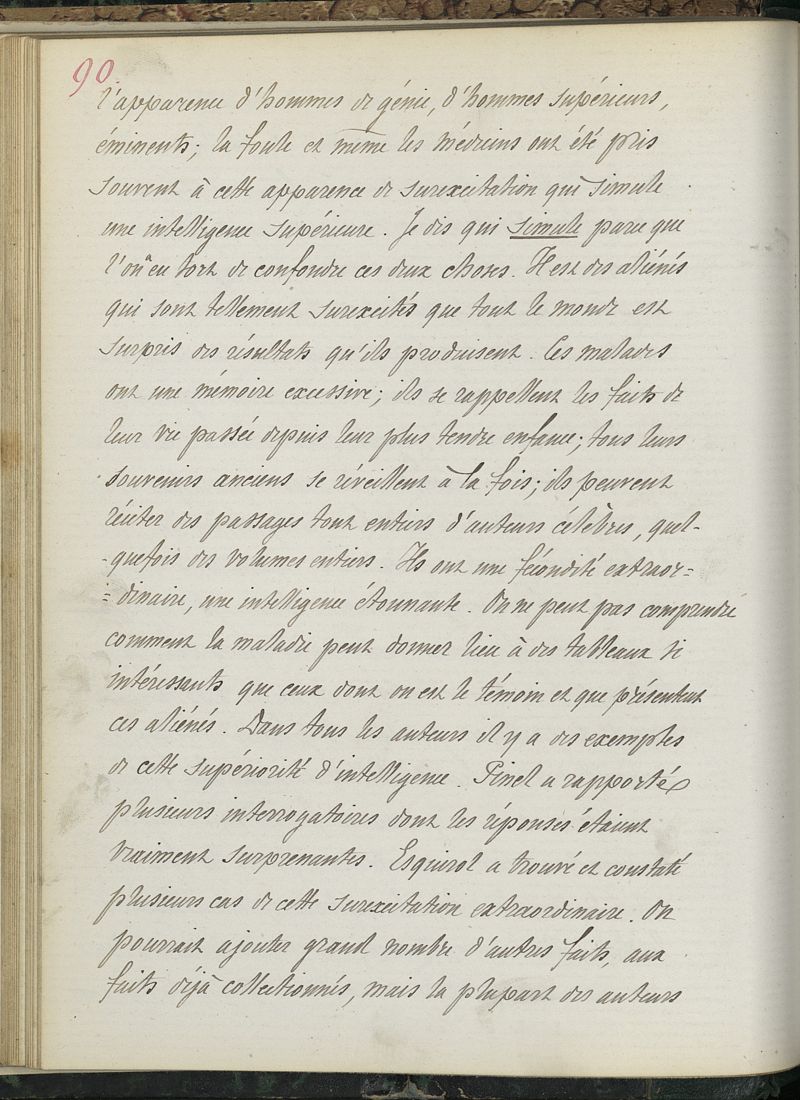 90.
l'apparence d'hommes de génie, d'hommes supérieurs,
éminents; la foule et même les médecins ont été pris
souvent à cette apparence de surexcitation qui simule
une intelligence supérieure. Je dis qui simule parce que
l'on a eu tort de confondre ces deux choses. Il est des aliénés
qui sont tellement surexcités que tout le monde est
surpris des résultats qu'ils produisent. Ces malades
ont une mémoire excessive; ils se rappellent les faits de
leur vie passée depuis leur plus tendre enfance; tous leurs
souvenirs anciens se réveillent à la fois; ils peuvent
réciter des passages tout entiers d'auteurs célèbres, quel-
-quefois des volumes entiers. Ils ont une fécondité extraor-=
= dinaire, une intelligence étonnante. On ne peut pas comprendre
comment la maladie peut donner lieu à des tableaux si
intéressants que ceux dont on est le témoin et que présentent
ces aliénés. Dans tous les auteurs il y a des exemples
de cette supériorité d'intelligence. Pinel a rapporté
plusieurs interrogatoires dont les réponses étaient
vraiment surprenantes. Esquirol a trouvé et constaté
plusieurs cas de cette surexcitation extraordinaire. On
pourrait ajouter grand nombre d'autres faits, aux
faits déjà collectionnés, mais la plupart des auteurs